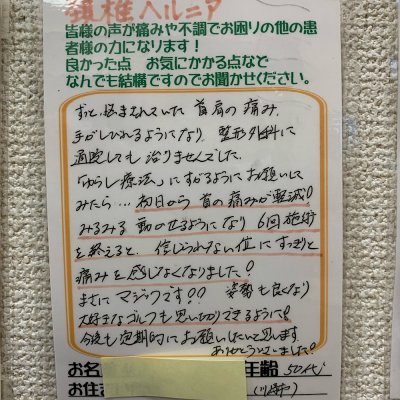 頚椎ヘルニア
皆様の声が痛みや不調でお困りの他の患
者様の力になります！
良かった点　お気にかかる点など
なんでも結構ですのでお聞かせください。
ずっと悩まされていた 首肩の痛み。
手がしびれるようになり、整形外科に
通院しても治りませんでした。
「ゆらし療法」にすがるようにお願いして
みたら…初日から首の痛みが軽減!
みるみる動かせるようになり 6回施術
を終えると、信じられない位にすっきりと
痛みを感じなくなりました！
まさにマジックです!! 姿勢も良くなり
大好きなゴルフも思い切りできるように!
今後も定期的にお願いしたいと思います。
ありがとうございました!
お名 年齢 50代
お住